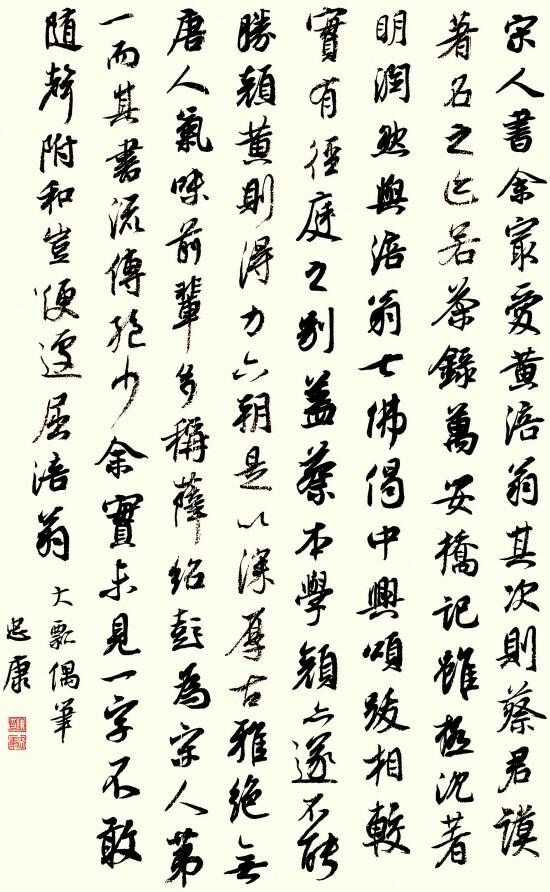 宋人書余最愛黃涪翁其次則蔡君謨
著名之迹若茶錄萬安橋記雖極沈著
明潤然與涪翁七佛偈中興頌跋相較
實有徑庭之別蓋蔡本學顏亦遂不能
勝顏黃則得力六朝是以深厚古雅絕無
唐人氣味前輩多稱薛紹彭為宋人第
一而其書流傳絕少余實未見一字不敢
隨聲附和豈便遽屈涪翁 大瓢偶筆
忠康